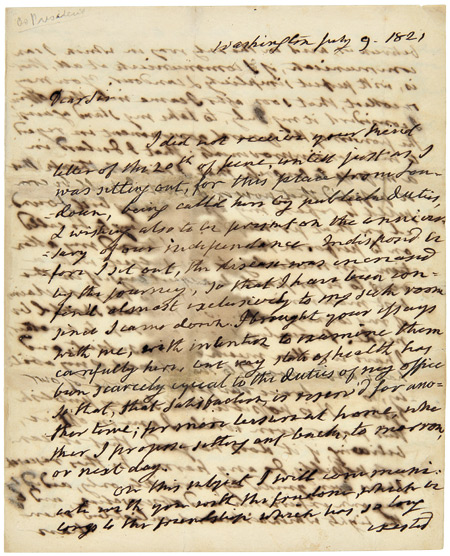 as President
Washington July 9. 1821
Dear Sir
I did not receive your friendly
letter of the 20th of June, untill just as I
was sitting out, for this place from Lou-
-doun, being called here by publick duties,
& wishing also to be present on the anniver-
-sary of our independence. Indisposed be
fore I set out, the disease was increased
by the journey, so that I have been con-
fin'd almost exclusively to my sick room
since I came down. I brought your essays
with me, with intention to examine them
carefully here, but my state of health has
been scarcely equal to the duties of my office
so that, that satisfaction is reserv'd for ano-
ther time, for more leasure at home, whi-
ther I propose setting out back, to morrow,
or next day.
On this subject I will communi-
cate with you with the freedom, which be
longs to the friendship which has so long
existed